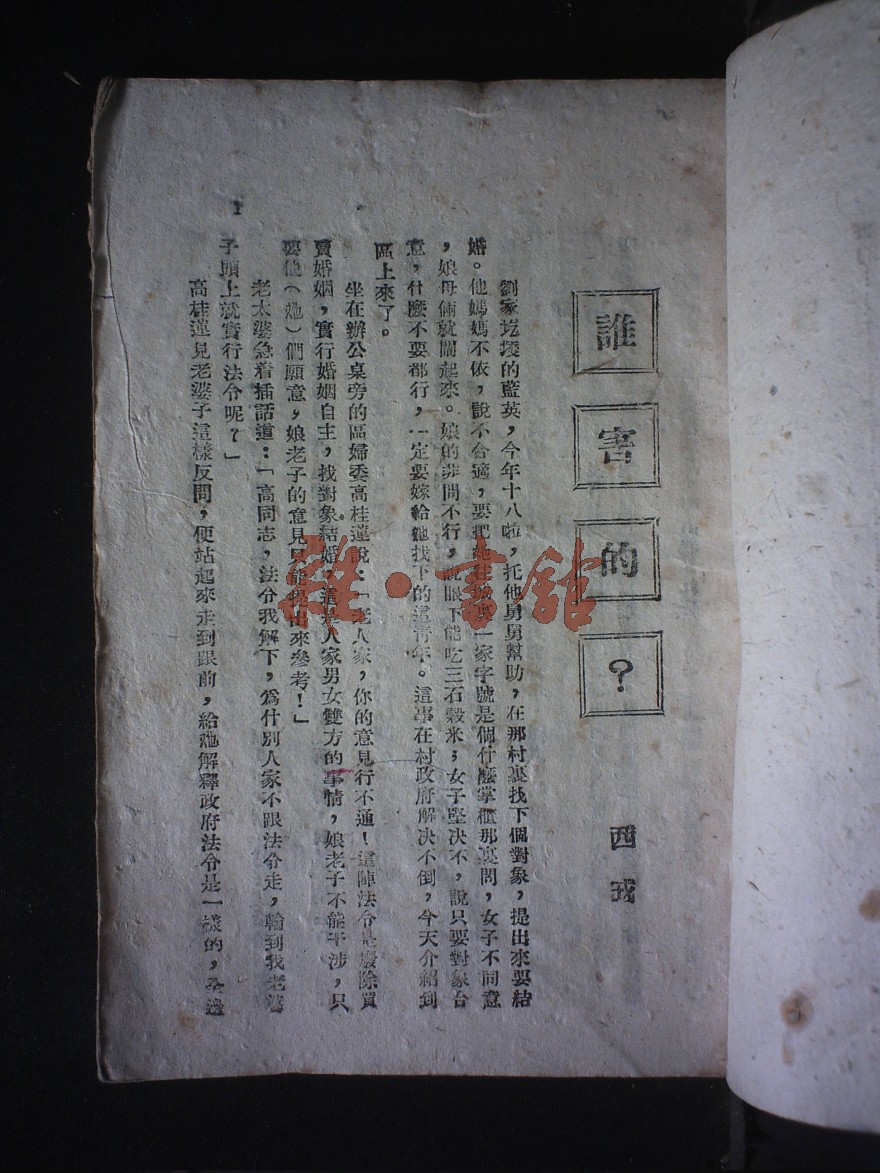 誰害的？
西戎
劉家圪堎的藍英，今年十八啦，托他舅舅幫助，在那村裏找下個對象，提出來要結
婚。他媽媽不依，說不合適，要把她往城裏一家字號是個什麼掌櫃那裏問，女子不同意
，娘母倆就鬧起來。娘的非問不行，說眼下能吃三石穀米；女子堅决不，說只要對象合
意，什麼不要都行，一定要嫁給她找下的這青年。這事在村政府解决不倒，今天介紹到
區上來了。
坐在辦公桌旁的區婦委高桂蓮說：「老人家，你的意見行不通！這陣法令是廢除買
賣婚姻，實行婚姻自主，找對象結婚，這是人家男女雙方的事情，娘老子不能干涉，只
要他（她）們願意，娘老子的意見只能提出來參考！」
老太婆急着插話道：「高同志，法令我解下，爲什別人家不跟法令走，輪到我老婆
子頭上就實行法令呢？」
高桂蓮見老婆子這樣反問，便站起來走到跟前，給她解釋政府法令是一樣的，全邊
1
雜·書館